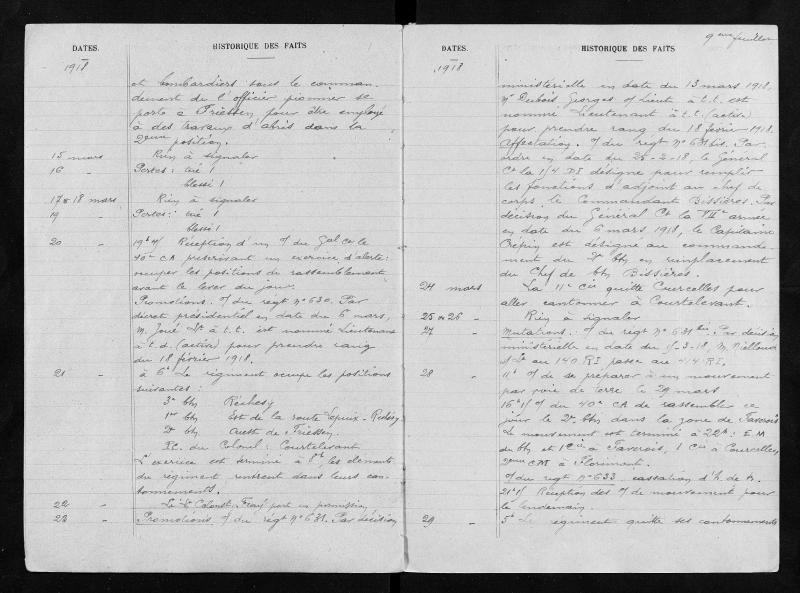 DATES.
HISTORIQUE DES FAITS
1918
et bombardiers sous le comman-
dement de l'officier pionnier se
porte à Friessen pour être employé
à des travaux d'abris dans la
2eme position.
15 mars Rien à signaler
16 - Pertes : tué 1
blessé 1
17 & 18 mars Rien à signaler
19 - Pertes : tué 1
blessé 1
20 - 19h Réception d'un O/ du Gal Ct le
40e CA prescrivant un exercice d'alerte:
occuper les positions de rassemblement
avant le lever du jour.
Promotions. O/ du regt No 630. Par
décret présidentiel en date du 6 mars,
M. Joué Lt à t.t. est nommé Lieutenant
à t.d. (active) pour prendre rang
du 18 février 1918.
21 - à 6h Le régiment occupe les positions
suivantes :
3e Bn Réchésy
1er Bn Est de la route - Réchésy
2e Bn Ouest de Friessen
P.C. du Colonel : Courtelevant
L'exercice est terminé à 8h, les éléments
du régiment rentrent dans leurs can-
tonnements.
22 - Le Lt Colonel part en permission
23 - Promotions O/ du régt No 631. Par décision
9eme feuillet
DATES.
HISTORIQUE DES FAITS
1918
ministérielle en date du 13 mars 1918,
Mr Dubois Georges s/Lieut à t.t. est
nommé Lieutenant à t.t. (active)
pour prendre rang du 18 février 1918.
Affectation. O/ du regt No 631 bis. Par
ordre en date du 26-2-18, le Général
Ct la DI désigne pour remplir
les fonctions d'adjoint au chef de
corps le Commandant Bissières. Par
décision du Général Ct la VIIe armée
en date du 6 mars 1918, le Capitaine
Crépin est désigné au commande-
ment du 2e Bn en remplacement
du Chef de Bn Bissières.
24 mars La 11e Cie quitte Courcelles pour
aller cantonner à Courtelevant.
25 & 26 - Rien à signaler
27 - Mutations : O/ du regt No 631 bis. Par décision
ministérielle en date du
s/Lt au 140 RI passe au 414 RI.
28 - 11h O/ de se préparer à un mouvement
par voie de terre le 29 mars
O/ du 40e CA de rassembler ce
jour le 2e Bn dans la zone de Faverois
Le mouvement est terminé à 22h : E M
du Bn et 1 Cie à Faverois, 1 Cie à Courcelles,
à Florimont.
O/ du regt No 633 cassation d'
21h Réception des O/ de mouvement pour
le lendemain.
29 - 5h Le régiment quitte ses cantonnements